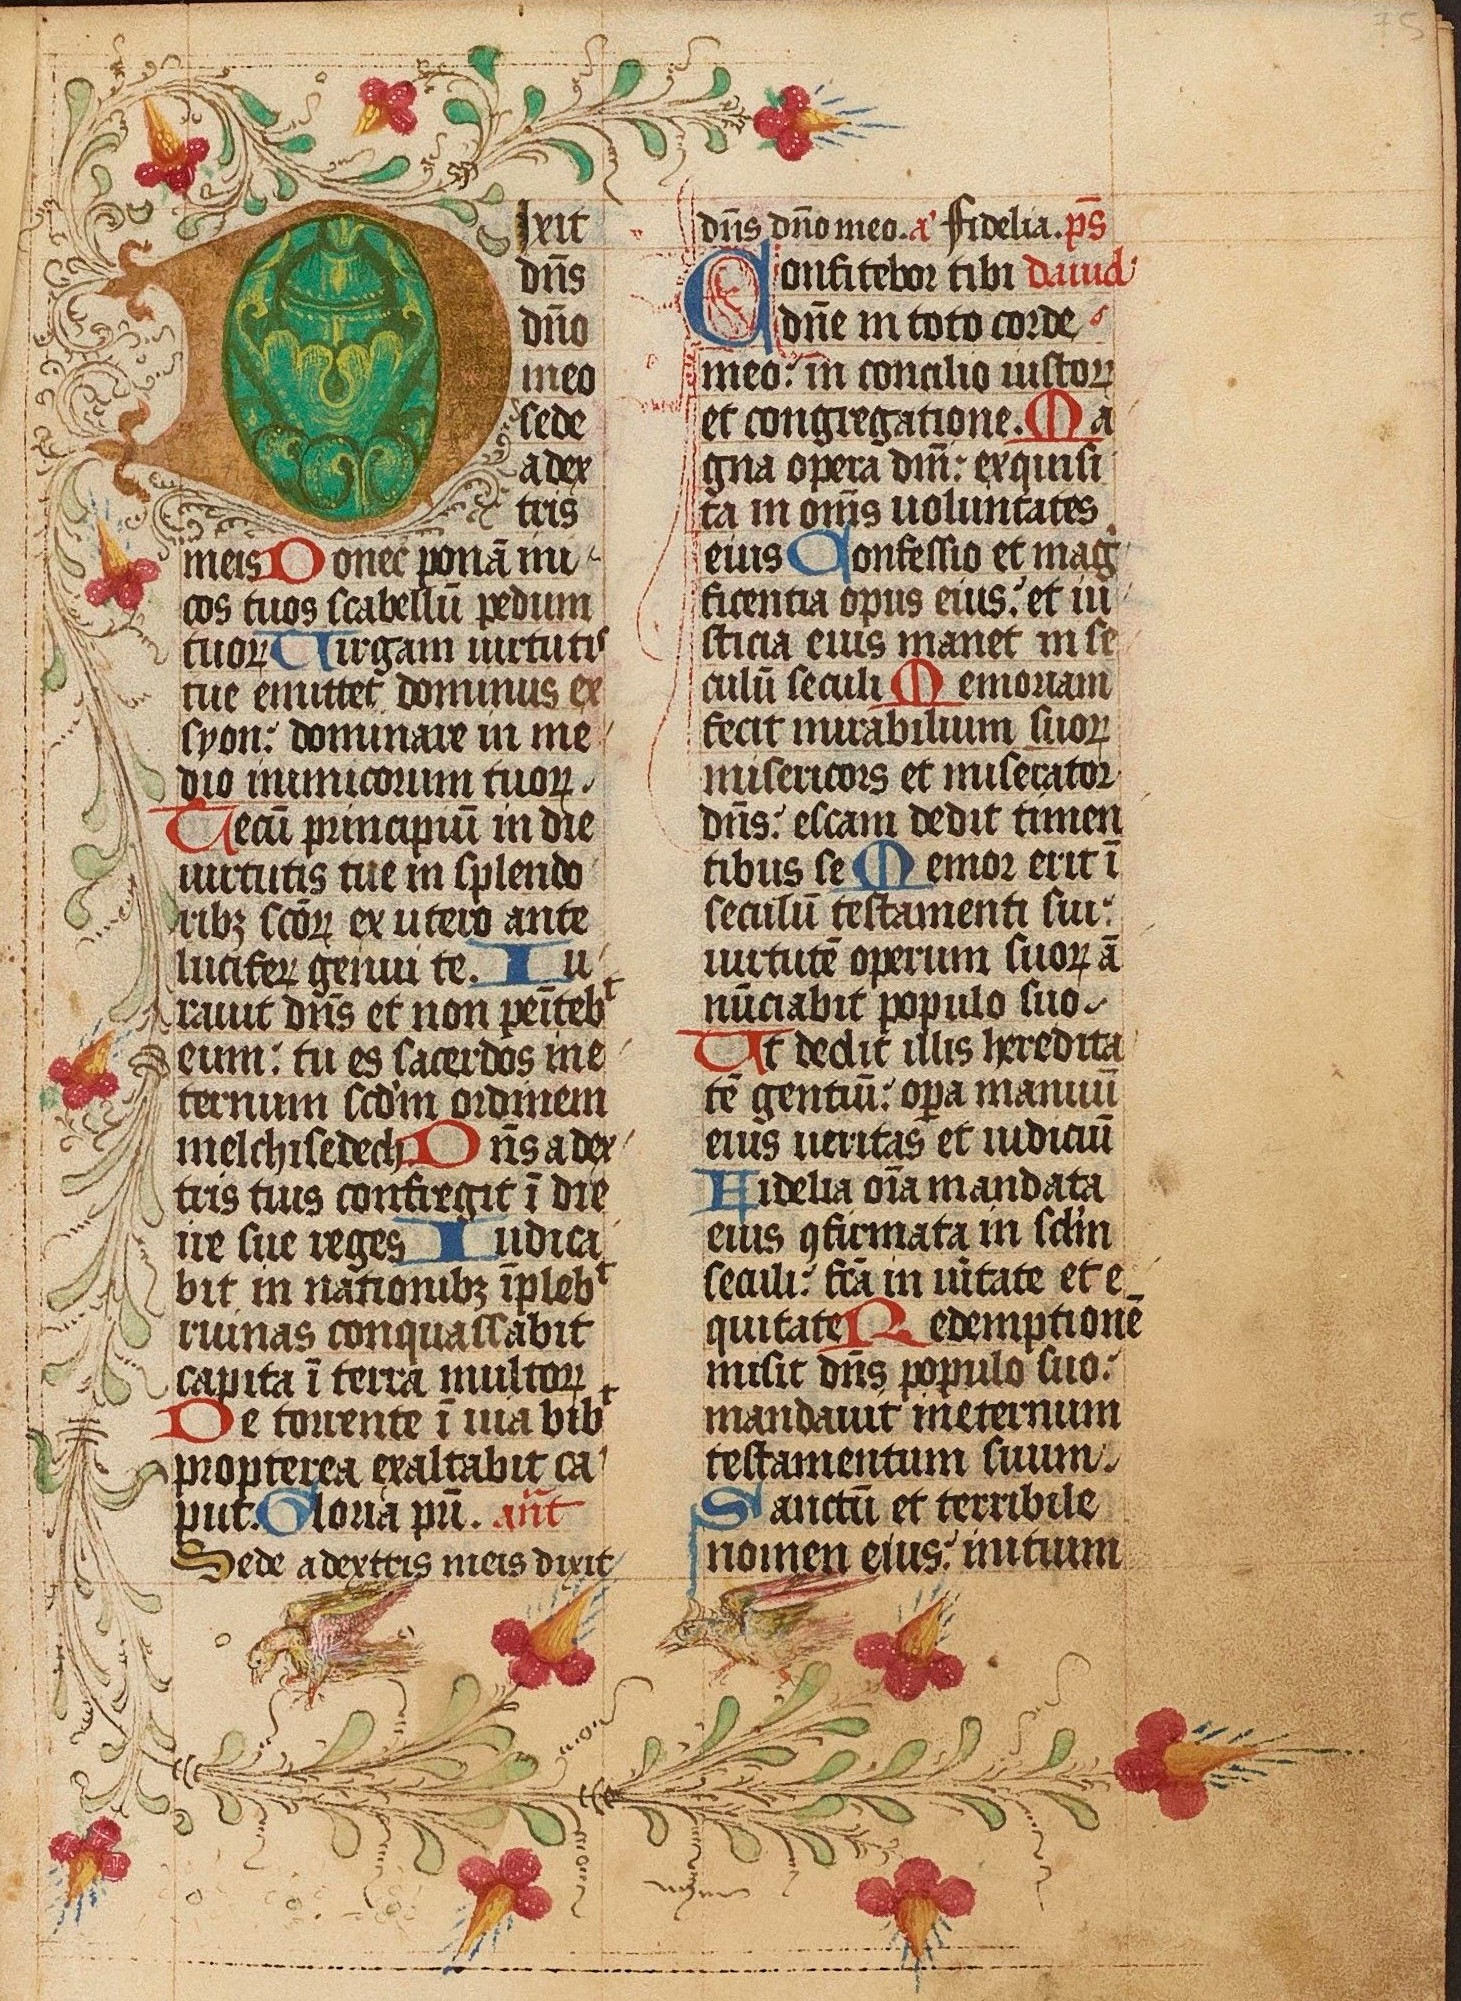 Dixit
dn̄s
dn̄o
meo
sede
a dex
tris
meis Donec ponā ini
cos tuos scabellū pedum
tuoꝝ Uirgam uirtutis
tue emittet dominus ex
syon: dominare in me
dio inimicorum tuoꝝ.
Tecū principiū in die
uirtutis tue in splendo
ribꝫ scōꝝ ex utero ante
luciferꝝ genui te. Iu
rauit dn̄s et non penītebͭ
eum: tu es sacerdos in e
ternum scd'm ordinem
melchisedech Dn̄s a dex
tris tuis confregit ī die
ire sue reges Iudica
bit in nationibꝫ īplebͭ
ruinas conquassabit
capita ī terra multoꝝ
De torrente ī uia bibͭ
propterea exaltabit ca
put. Gloria pr̄i. an̄t
Sede a dextris meis dixit
dn̄s dn̄o meo. a' Fidelia. ps̄
Confitebor tibi dauid
dn̄e in toto corde
meo: in concilio iustoꝝ
et congregatione. Ma
gna opera dn̄i: exquisi
ta in om̄s uoluntates
eius Confessio et mag
ficentia opus eius: et iu
sticia eius manet in se
culū seculi Memoriam
fecit mirabilium suoꝝ
misericors et miserator
dn̄s: escam dedit timen
tibus se Memor erit ī
seculū testamenti sui:
uirtutē operum suoꝝ ā
nūciabit populo suo.
Ut det illis heredita
tē gentiū: oꝑa manuū
eius ueritas et iudiciū
Fidelia oīa mandata
eius ꝯfirmata in scl'm
seculi: fc̄a in ūitate et e
quitate Redemptionē
misit dn̄s populo suo:
mandauit in eternum
testamentum suum.
Sanctū et terribile
nomen eius: initium